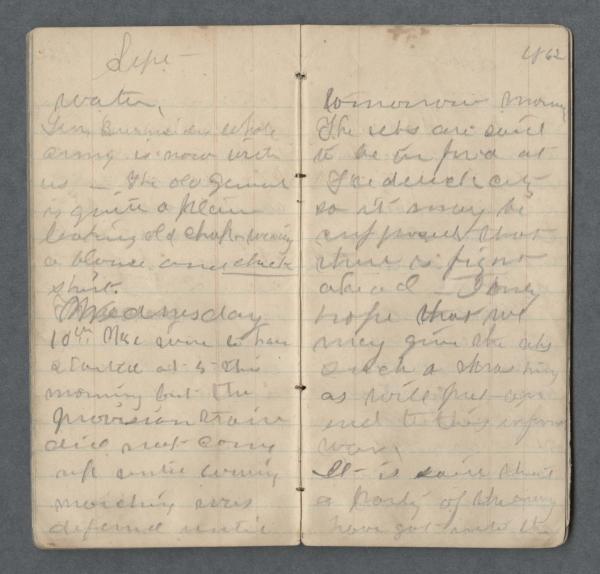 Sept
water,
Gen Burnsides whole
army is now with
us — The old General
is quite a plain
looking old chap wearing
a blouse and check
shirt.
Wednesday
10th We were to have
started at 5 this
morning but the
provision train
did not come
up until evening
marching was
deferred until
1862
tomorrow morning
The rebs are said
to be in force at
Frederick city
so it may be
supposed that
there is fight
ahead — I only
hope that we
may give the rebs
such a thrashing
as will put an
end to this
war,
It is said that
a party of the enemy
have got into the